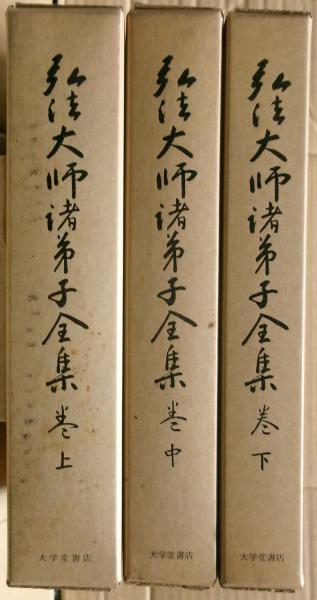 弘法大師諸弟子全集 巻上
大学堂書店
弘法大師諸弟子全集 巻中
大学堂書店
弘法大師諸弟子全集 巻下
大学堂書店